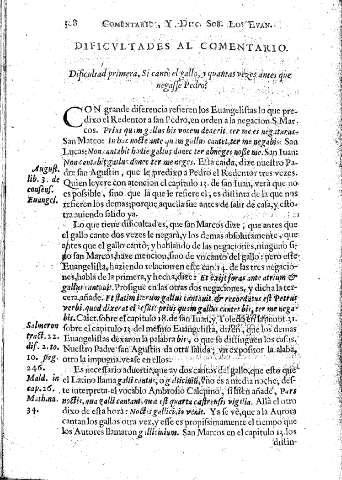 508 COMENTARIO, Y DUC. SOB. LOS EVAN.
DIFICULTADES AL COMENTARIO.
Dificultad primera, Si cantò el gallo, y quantas vezes antes que
negasse Pedro?
CON grande diferencia refieren los Euangelistas lo que pre-
dixo el Redentor a san Pedro, en orden a la negacion. S. Mar-
cos. Prius quam gallus bis vocem dederit, ter me es negaturus.
San Mateo: In hac nocte ante quam gallus cantet, ter me negabis: San
Lucas: Non cantabit hodie gallus donec ter abneges nosse me. San Iuan:
Non cantabit gallus donec ter me neges. Esta caida, dize nuestro Pa-
dre san Agustin, que le predixo a Pedro el Redentor tres vezes.
Quien leyere con atencion el capitulo 13. de san Iuan, verà que no
es possible, sino que la que se refiere es distinta de la que nos
refieren los demas: porque aquella fue antes de salir de casa, y esto-
tra auiendo salido ya.
August.
lib. 3. de
consens.
Euangel.
Lo que tiene dificultades, que san Marcos dize, que antes que
el gallo cante dos vezes le negarà, y los demas absolutamente, que
antes que el gallo cante; y hablando de las negaciones, ninguno si-
no san Marcos haze mencion, sino de vn canto del gallo: pero este
Euangelista, haziendo relacion en este cap. 14. de las tres negacio-
nes, habla de la primera, y hecha, dize: Et exijt foras ante atrium &
gallus cantauit. Prosigue en las otras dos negaciones, y dicha la ter-
cera, añade. Et statim iterum gallus cantauit, & recordatus est Petrus
verbi quod dixerat ei Iesus: prius quam gallus cantet bis, ter me nega-
bis. Caiet. sobre el capitulo 18. de san Iuan, y Toledo en el anot. 11.
sobre el capitulo 13. del mesmo Euangelista, dizen, que los demas
Euangelistas dexaron la palabra bis, o que so distinguen los casos.
Nuestro Padre san Agustin da otra salida; vn expositor la alaba,
otro la impugna, vease en ellos:
Salmeron
tract. 22.
dis. 2. 10.
10. pag.
246.
Mald. in
cap. 26.
Matth. n.
34.
Es necessario aduertir, que ay dos cantos del gallo, que esto que
el Latino llama galli cantus, o gallicinium, vno es a media noche, des-
te interpreta el vocablo Ambrosio Calepino, si bien añade, Pars
noctis, qua galli cantant, qua est quarta castrensis vigilia. Allà el otro
dixo de essa hora: Noctis gallicinio venit. Ya se vè, que a la Aurora
cantan los gallos otra vez, y esse es propissimamente el tiempo que
los Autores llamaron gallicinium. San Marcos en el capitulo 13. los
distin-